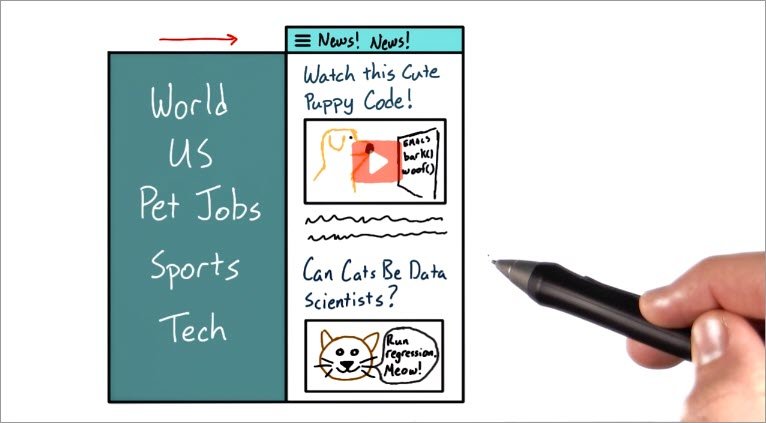 News! News!
World
US
Pet Jobs
Sports
Tech
Watch this Cute
Puppy Code!
EMACS
bark()
woof()
Can Cats Be Data
Scientists?
Run
regression.
Meow!